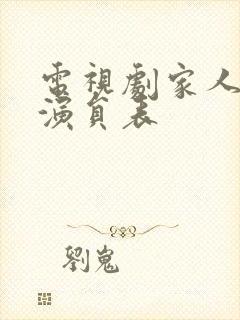 電視劇家人
演員表
劉嵬